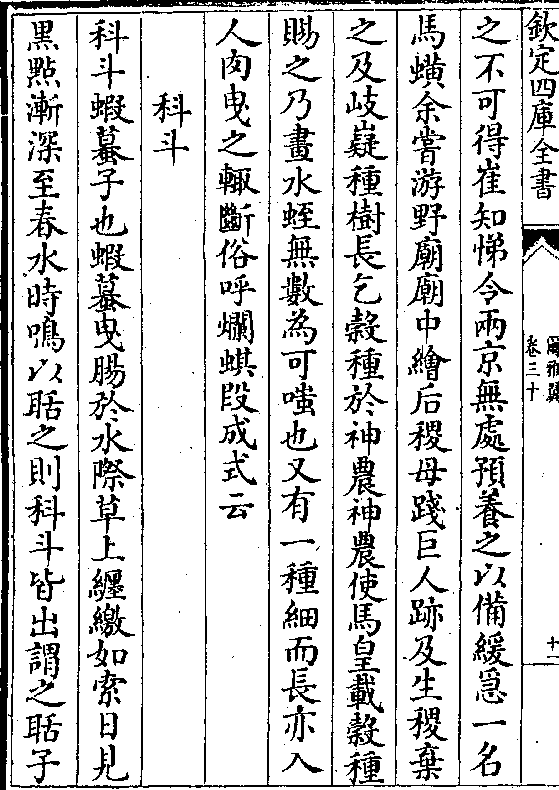 欽定四庫全書
爾雅翼
卷三十
十一
之不可得崔知悌令兩京無處預養之以備緩急一名
馬蟥余嘗游野廟廟中繪后稷母踐巨人跡及生稷棄
之及岐嶷種樹長乞穀種於神農神農使馬皇載穀種
賜之乃畫水蛭無數為可嗤也又有一種細而長亦入
人肉曳之輒斷俗呼爛蜞段成式云
科斗
科斗蝦蟇子也蝦蟇曳腸於水際草上纏繳如索日見
黒㸃漸深至春水時鳴以聒之則科斗皆出謂之聒子